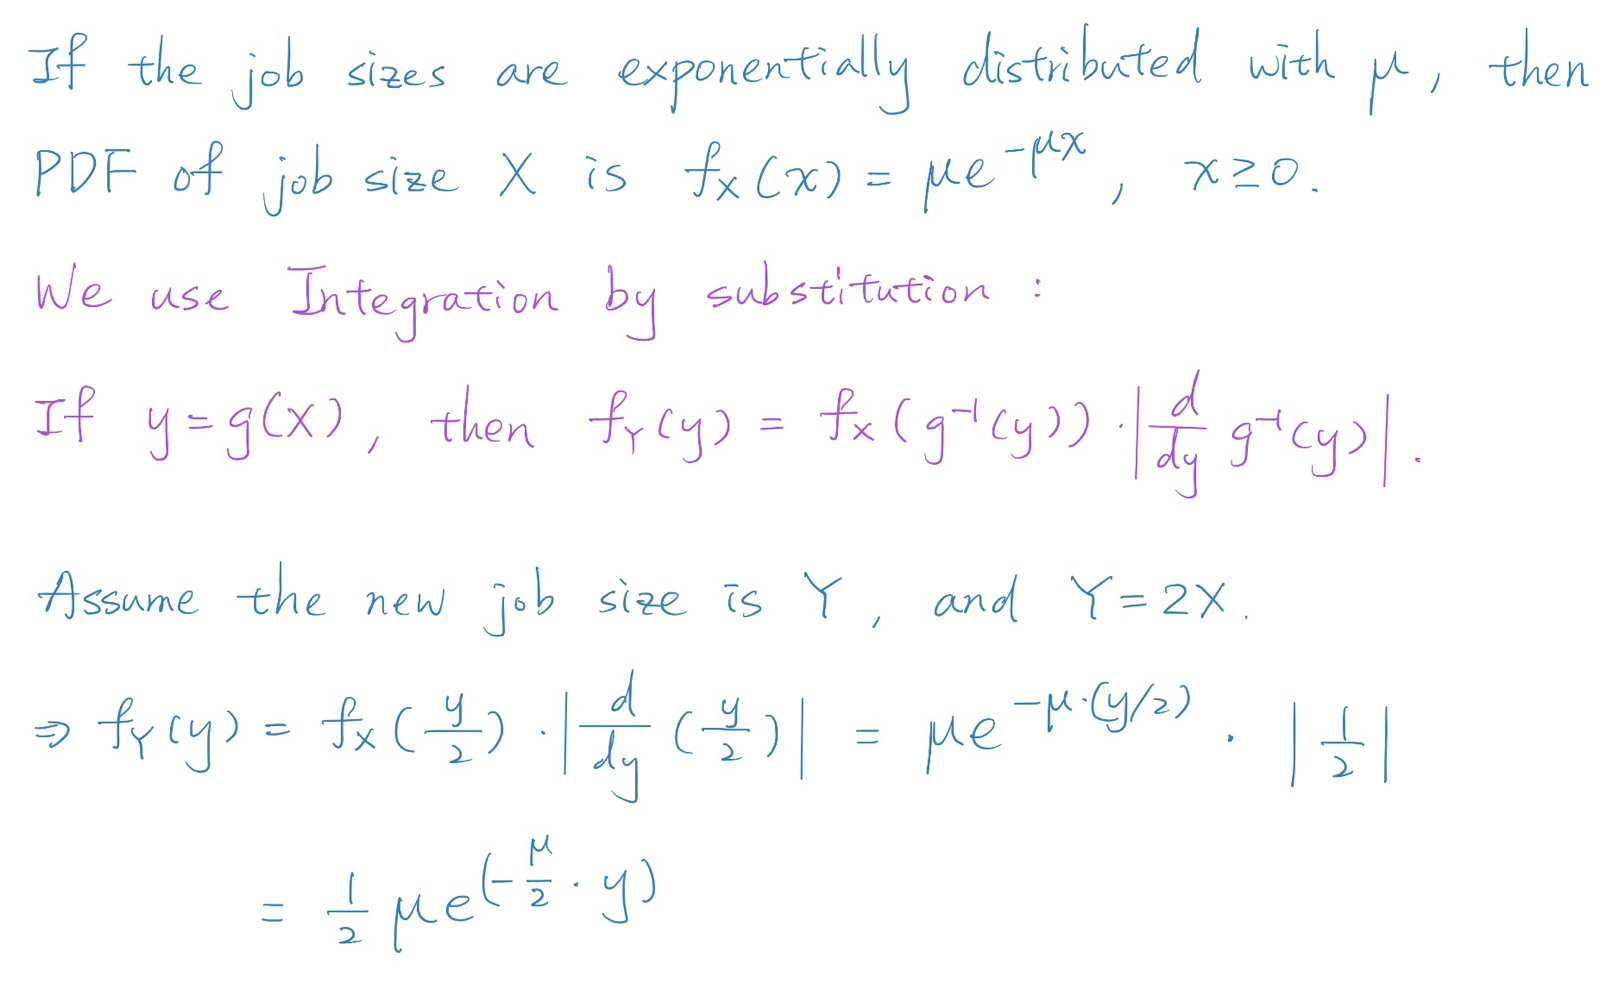 If the job sizes are exponentially distributed with μ, then
PDF of job size X is f_X(x) = μe^{-μx}, x≥0.
We use Integration by substitution :
If y=g(X), then f_Y(y) = f_X(g^{-1}(y)) · |d/dy g^{-1}(y)|.
Assume the new job size is Y, and Y=2X.
⇒ f_Y(y) = f_X(y/2) · |d/dy (y/2)| = μe^{-μ·(y/2)} · |1/2|
= 1/2 μe^{(-μ/2 · y)}